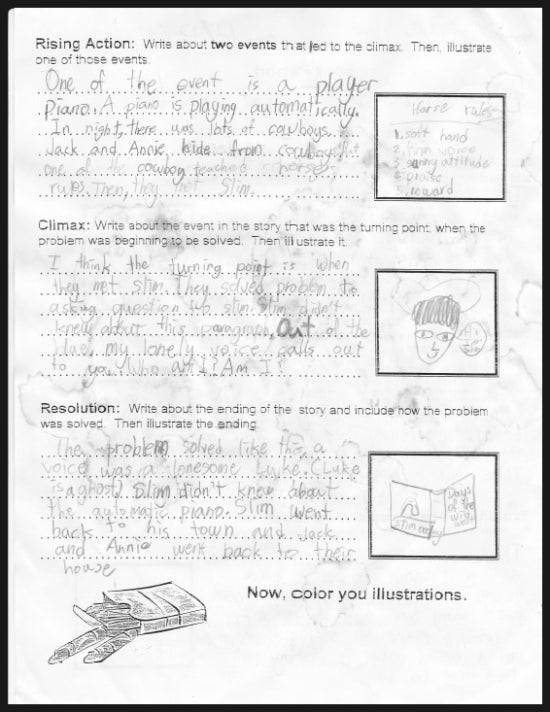 Rising Action: Write about two events that led to the climax. Then, illustrate
one of those events.
One of the event is a player
piano. A piano is playing automatically.
In night, there was lots of cowboys.
Jack and Annie, hide from cowboys, but
one of the cowboy teached horse
rules. Then, they met Slim.
Horse rules
1. soft hand
2. firm voice
3. sunny attitude
4. praise
5. reward
Climax: Write about the event in the story that was the turning point, when the
problem was beginning to be solved. Then illustrate it.
I think the turning point is when
they met slim. They solved problem to
asking question to slim. Slim didn't
knew about this paragraph, Out of the
blue, my lonely voice calls out
to you, Who am I? Am I?
Resolution: Write about the ending of the story and include how the problem
was solved. Then illustrate the ending.
The problem solved like this, a
voice was a lonesome Luke. (Luke
is a ghost) Slim didn't knew about
the automatic piano. Slim went
back to his town and Jack
and Annie went back to their
house
Days
of the
wild
west
Slim
Now, color you illustrations.